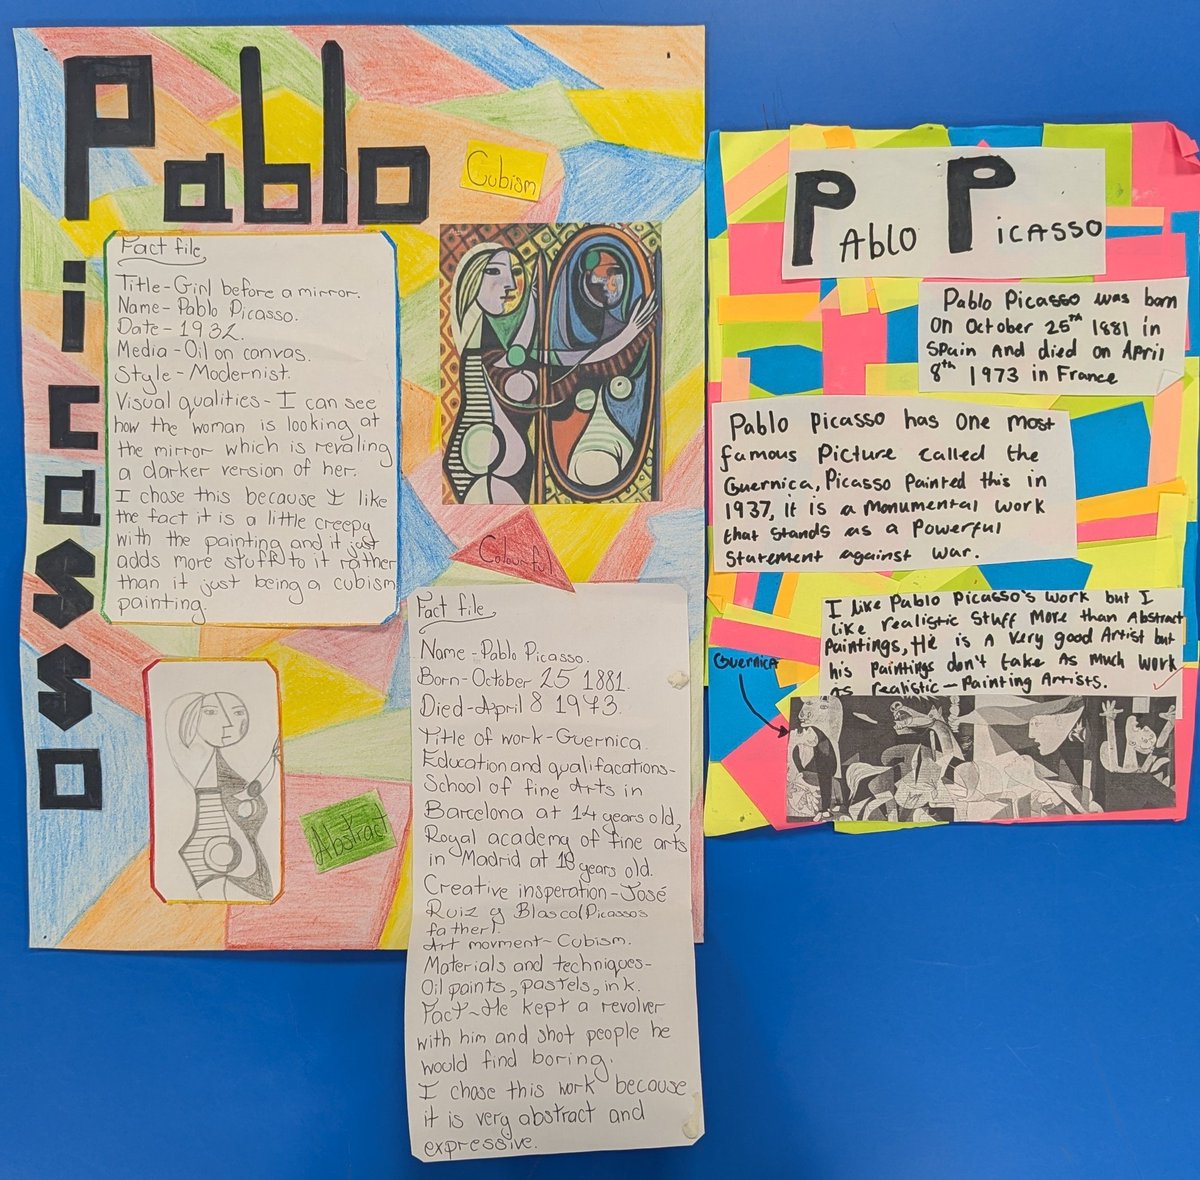 Pablo
Picasso
Cubism
Fact file
Title-Girl before a mirror.
Name-Pablo Picasso.
Date-1932.
Media-Oil on canvas.
Style-Modernist.
Visual qualities-I can see
how the woman is looking at
the mirror which is revaling
a darker version of her.
I chose this because I like
the fact it is a little creepy
with the painting and it just
adds more stuff to it rather
than it just being a cubism
painting.
Colourful
Abstract
Fact file
Name-Pablo Picasso.
Born-October 25 1881.
Died-April 8 1973.
Title of work-Guernica.
Education and qualifacations-
School of fine Arts in
Barcelona at 14 years old,
Royal academy of fine arts
in Madrid at 18 years old.
Creative insperation-José
Ruiz y Blasco(Picasso's
father).
Art movment-Cubism.
Materials and techniques-
Oil paints, pastels, ink.
Fact-He kept a revolver
with him and shot people he
would find boring.
I chose this work because
it is very abstract and
expressive.
Pablo Picasso
Pablo Picasso was born
on October 25th 1881 in
Spain and died on April
8th 1973 in France
Pablo Picasso has one most
famous Picture called the
Guernica, Picasso Painted this in
1937, it is a Monumental work
that stands as a Powerful
Statement against war.
I like Pablo Picasso's work but I
like realistic stuff More than Abstract
Paintings, He is a very good Artist but
his Paintings don't take as much work
as realistic-Painting Artists.
Guernica